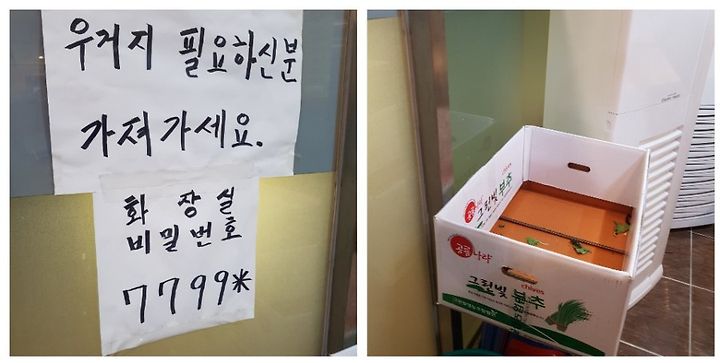 우거지 필요하신분
가져가세요.
화장실
비밀번호
7799*
그린빛 부추
chives
그린빛 부추